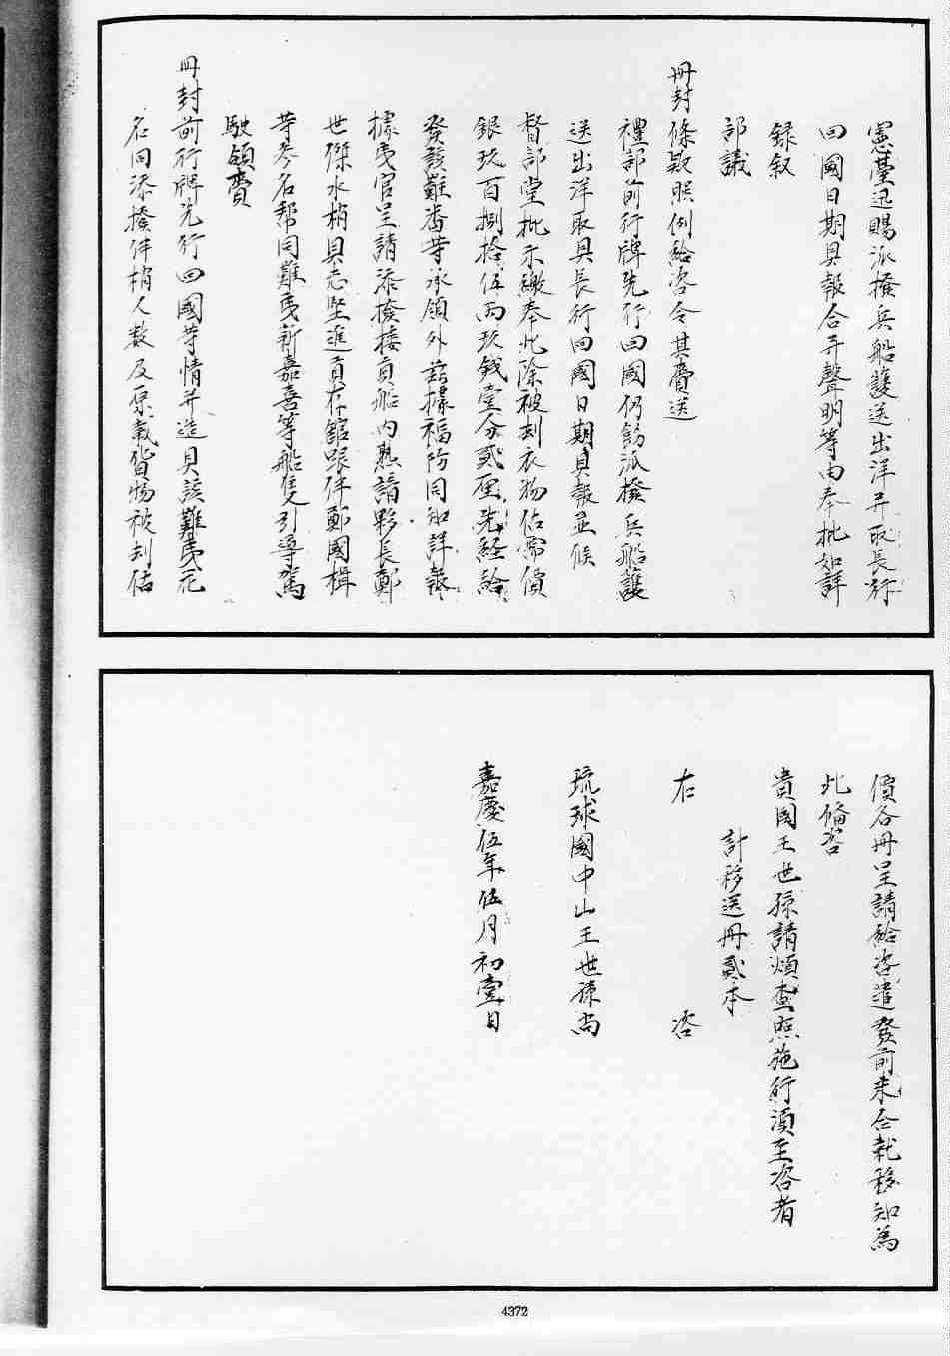 憲臺迅賜派撥兵船護送出洋并取長行
回國日期具報合并聲明等由奉批如詳
録叙
部議
冊封條款照例給咨令其賫送
禮部前行牌先行回國仍飭派撥兵船護
送出洋取具長行回國日期具報並候
督部堂批示繳奉此除被刦衣物估需價
銀玖百捌拾伍兩玖錢壹分貳厘先經給
發該難番等承領外茲據福防同知詳報
據夷官呈請添撥接貢船内熟諳夥長鄭
世傑水梢具志堅進貢存館跟伴鄭國楫
等叁名帮同難夷新嘉喜等船隻引導駕
駛領賫
冊封前行牌先行回國等情并造具該難夷花
名同添撥伴梢人数及原載貨物被刦估
價各冊呈請給咨遣發前来合就移知為
此備咨
貴國王世孫請煩查照施行湏至咨者
計移送冊貳本
右 咨
琉球國中山王世孫尚
嘉慶伍年伍月初壹日
4372